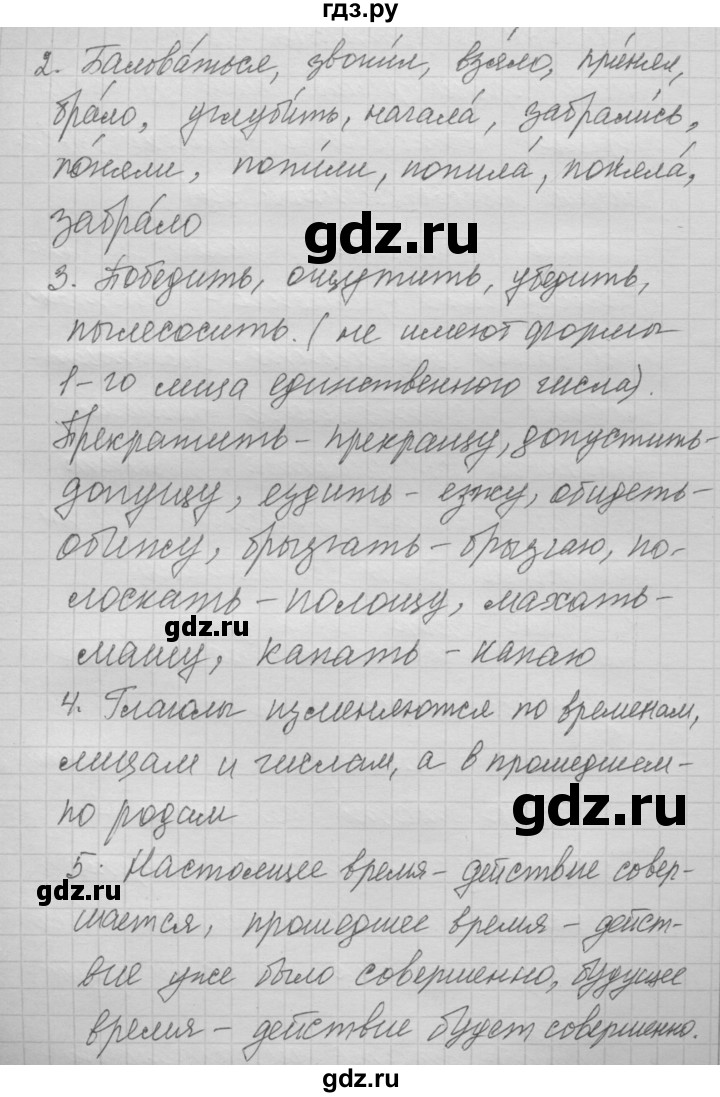 гдз.ру
2. Балова́ться, звони́л, взя́ло, при́нял,
бра́ло, углуби́ть, начала́, забрали́сь,
по́няли, попи́ли, попила́, поняла́,
забра́ло
gdz.ru
3. Победить, ощутить, убедить,
пылесосить. (не имеют формы
1-го лица единственного числа).
Прекратить - прекращу, допустить-
допущу, ездить - езжу, обидеть-
обижу, брызгать - брызгаю, по-
лоскать - полощу, махать-
gdz.ru
машу, капать - капаю
4. Глаголы изменяются по временам,
лицам и числам, а в прошедшем-
gdz.ru
по родам
5. Настоящее время - действие совер-
шается, прошедшее время - дейст-
вие уже было совершенно, будущее
время - действие будет совершенно.
gdz.ru